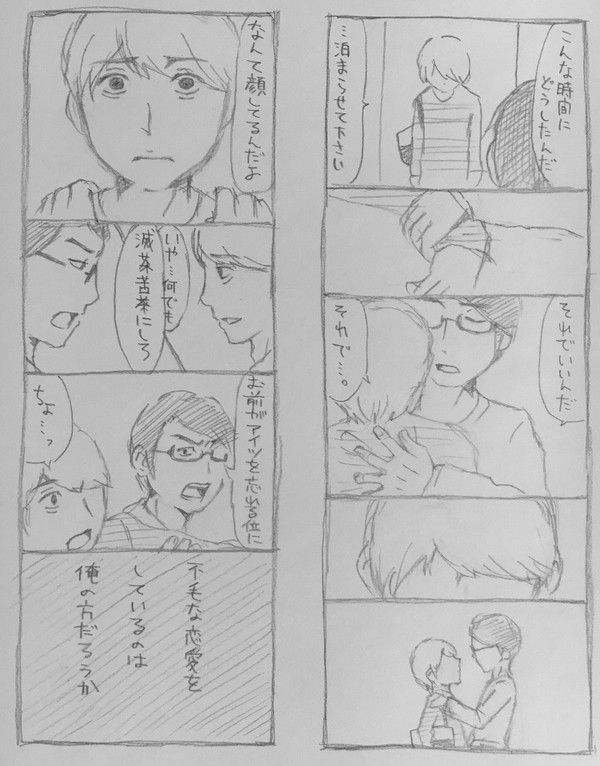 こんな時間に
どうしたんだ
…泊まらせて下さい
それでいいんだ
それで…。
なんて顔してるんだよ
いや…何でも
滅茶苦茶にしろ
お前がアイツを忘れる位に
ちょ…っ
不毛な恋愛を
しているのは
俺の方だろうか